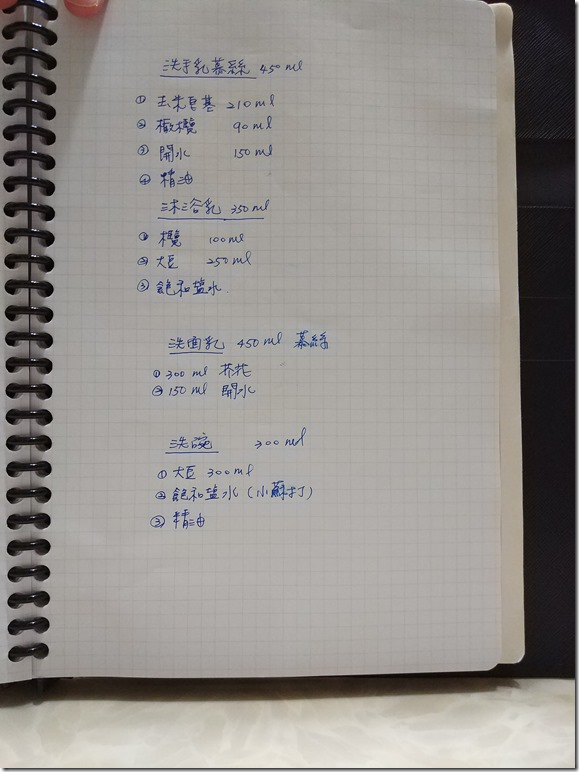 洗手乳慕絲 450 ml
① 玉米皂基 210 ml
② 橄欖 90 ml
③ 開水 150 ml
④ 精油
沐浴乳 350 ml
① 欖 100 ml
② 大豆 250 ml
③ 飽和鹽水.
洗面乳 450 ml 慕絲
① 300 ml 芥花
② 150 ml 開水
洗碗 300 ml
① 大豆 300 ml
② 飽和鹽水 (小蘇打)
③ 精油